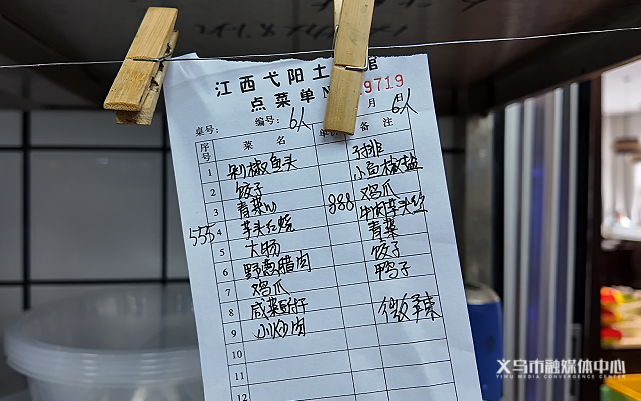 江西弋阳土 馆
点菜单 N 9719
桌号: 编号: 6人 月 日 6人
序号 菜名 单价 备注
1 剁椒鱼头 子排
2 饺子 小鱼椒盐
3 青菜 888 鸡爪
555 4 芋头红烧 牛肉芋头丝
5 大肠 青菜
6 野葱腊肉 饺子
7 鸡爪 鸭子
8 咸菜
9 小炒肉 微辣
10
11
12
义乌市融媒体中心
YIWU MEDIA CONVERGENCE CENTER